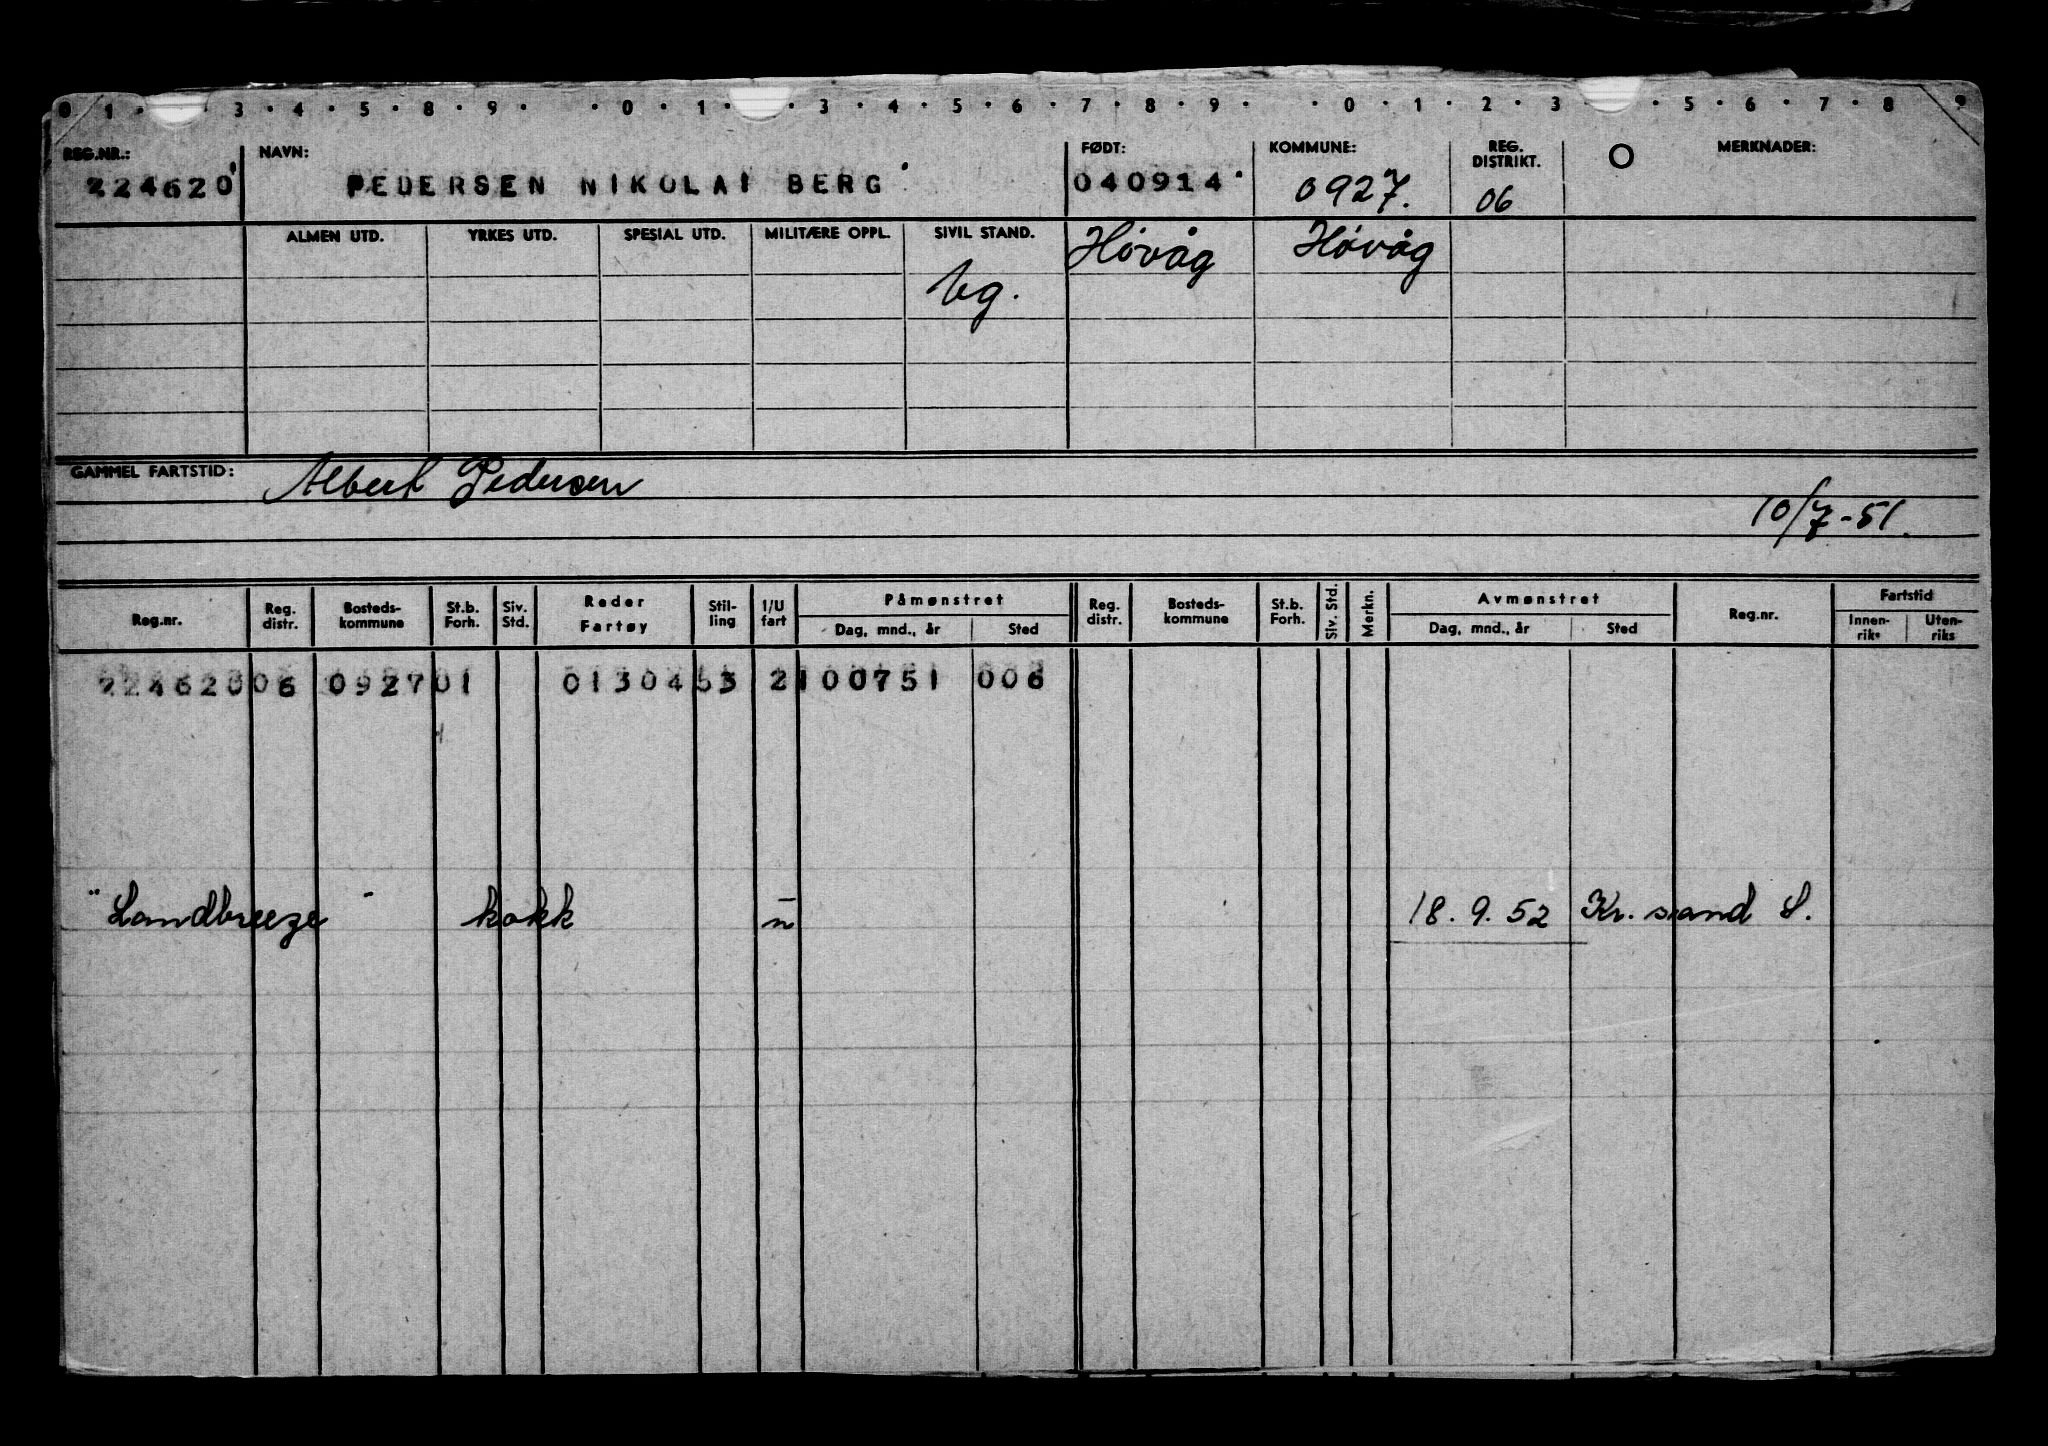 0 1 · 3 · 4 · 5 · 8 · 9 · · 0 · 1 · · 3 · 4 · 5 · 6 · 7 · 8 · 9 · · 0 · 1 · 2 · 3 · 5 · 6 · 7 · 8 9
REG.NR.: NAVN: FØDT: KOMMUNE: REG. DISTRIKT. O MERKNADER:
224620 PEDERSEN NIKOLAI BERG 040914 0927. 06
ALMEN UTD. YRKES UTD. SPESIAL UTD. MILITÆRE OPPL. SIVIL STAND. Høvåg Høvåg
Ug.
GAMMEL FARTSTID: Albert Pedersen
10/7-51.
Reg.nr. Reg. distr. Bosteds- kommune St.b. Forh. Siv. Std. Reder Fartøy Stil- ling I/U fart Påmønstret Dag, mnd., år Sted Reg. distr. Bosteds- kommune St.b. Forh. Siv. Std. Merkn. Avmønstret Dag, mnd., år Sted Reg.nr. Fartstid Innen- riks Uten- riks
224620 06 0927 01 01304 53 2 100751 006
"Landbreeze" kokk u 18.9.52 Kr.sand S.